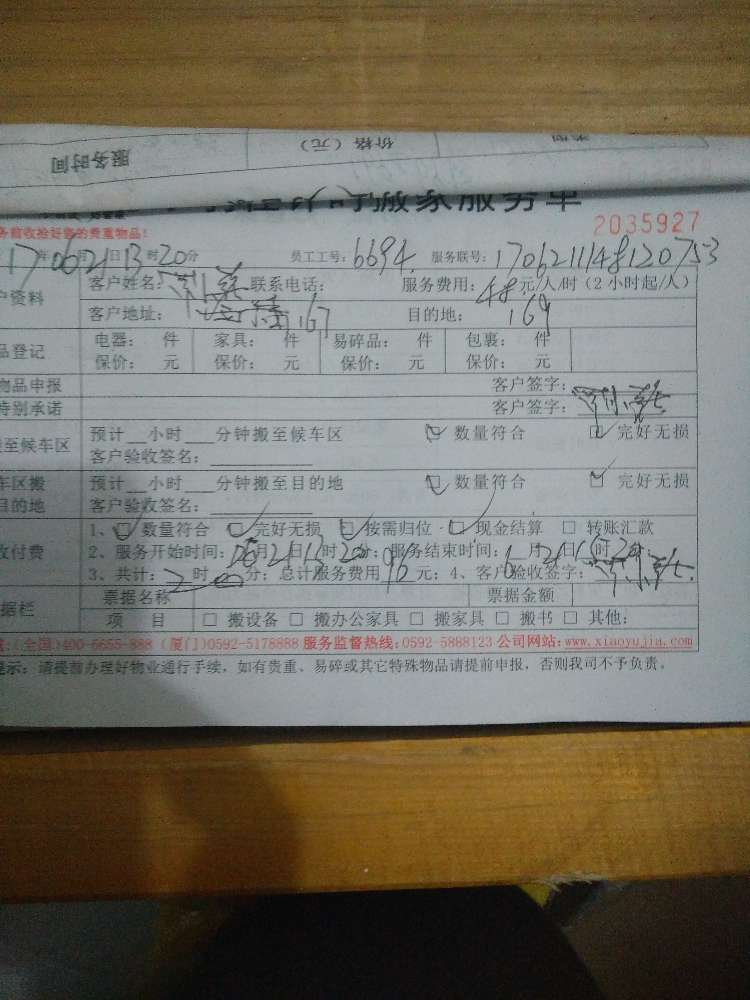 服务时间 价格（元）
搬家服务单
2035927
务前收捡好您的贵重物品!
17年06月21日13时20分 员工工号：6694 服务联号：1706211148120753
户资料 客户姓名： 联系电话： 服务费用：48元/人/时（2小时起/人）
客户地址： 167 目的地：169
品登记 电器： 件 家具： 件 易碎品： 件 包裹： 件
保价： 元 保价： 元 保价： 元 保价： 元
物品申报 客户签字：
特别承诺 客户签字：
搬至候车区 预计__小时___分钟搬至候车区 ☑ 数量符合 ☑ 完好无损
客户验收签名：
车区搬 预计__小时___分钟搬至目的地 ☑ 数量符合 ☑ 完好无损
目的地 客户验收签名：
收付费 1、☑ 数量符合 ☑ 完好无损 ☑ 按需归位 ☑ 现金结算 □ 转账汇款
2、服务开始时间：06月21日13时20分；服务结束时间：6月21日15时20
3、共计：2时 分；总计服务费用96元；4、客户验收签字：
据栏 票据名称 票据金额
项 目 □ 搬设备 □ 搬办公家具 □ 搬家具 □ 搬书 □ 其他：
(全国)400-6655-888 (厦门)0592-5178888 服务监督热线：0592-5888123 公司网站：www.xiaoyujia.com
提示：请提前办理好物业通行手续，如有贵重、易碎或其它特殊物品请提前申报，否则我司不予负责。